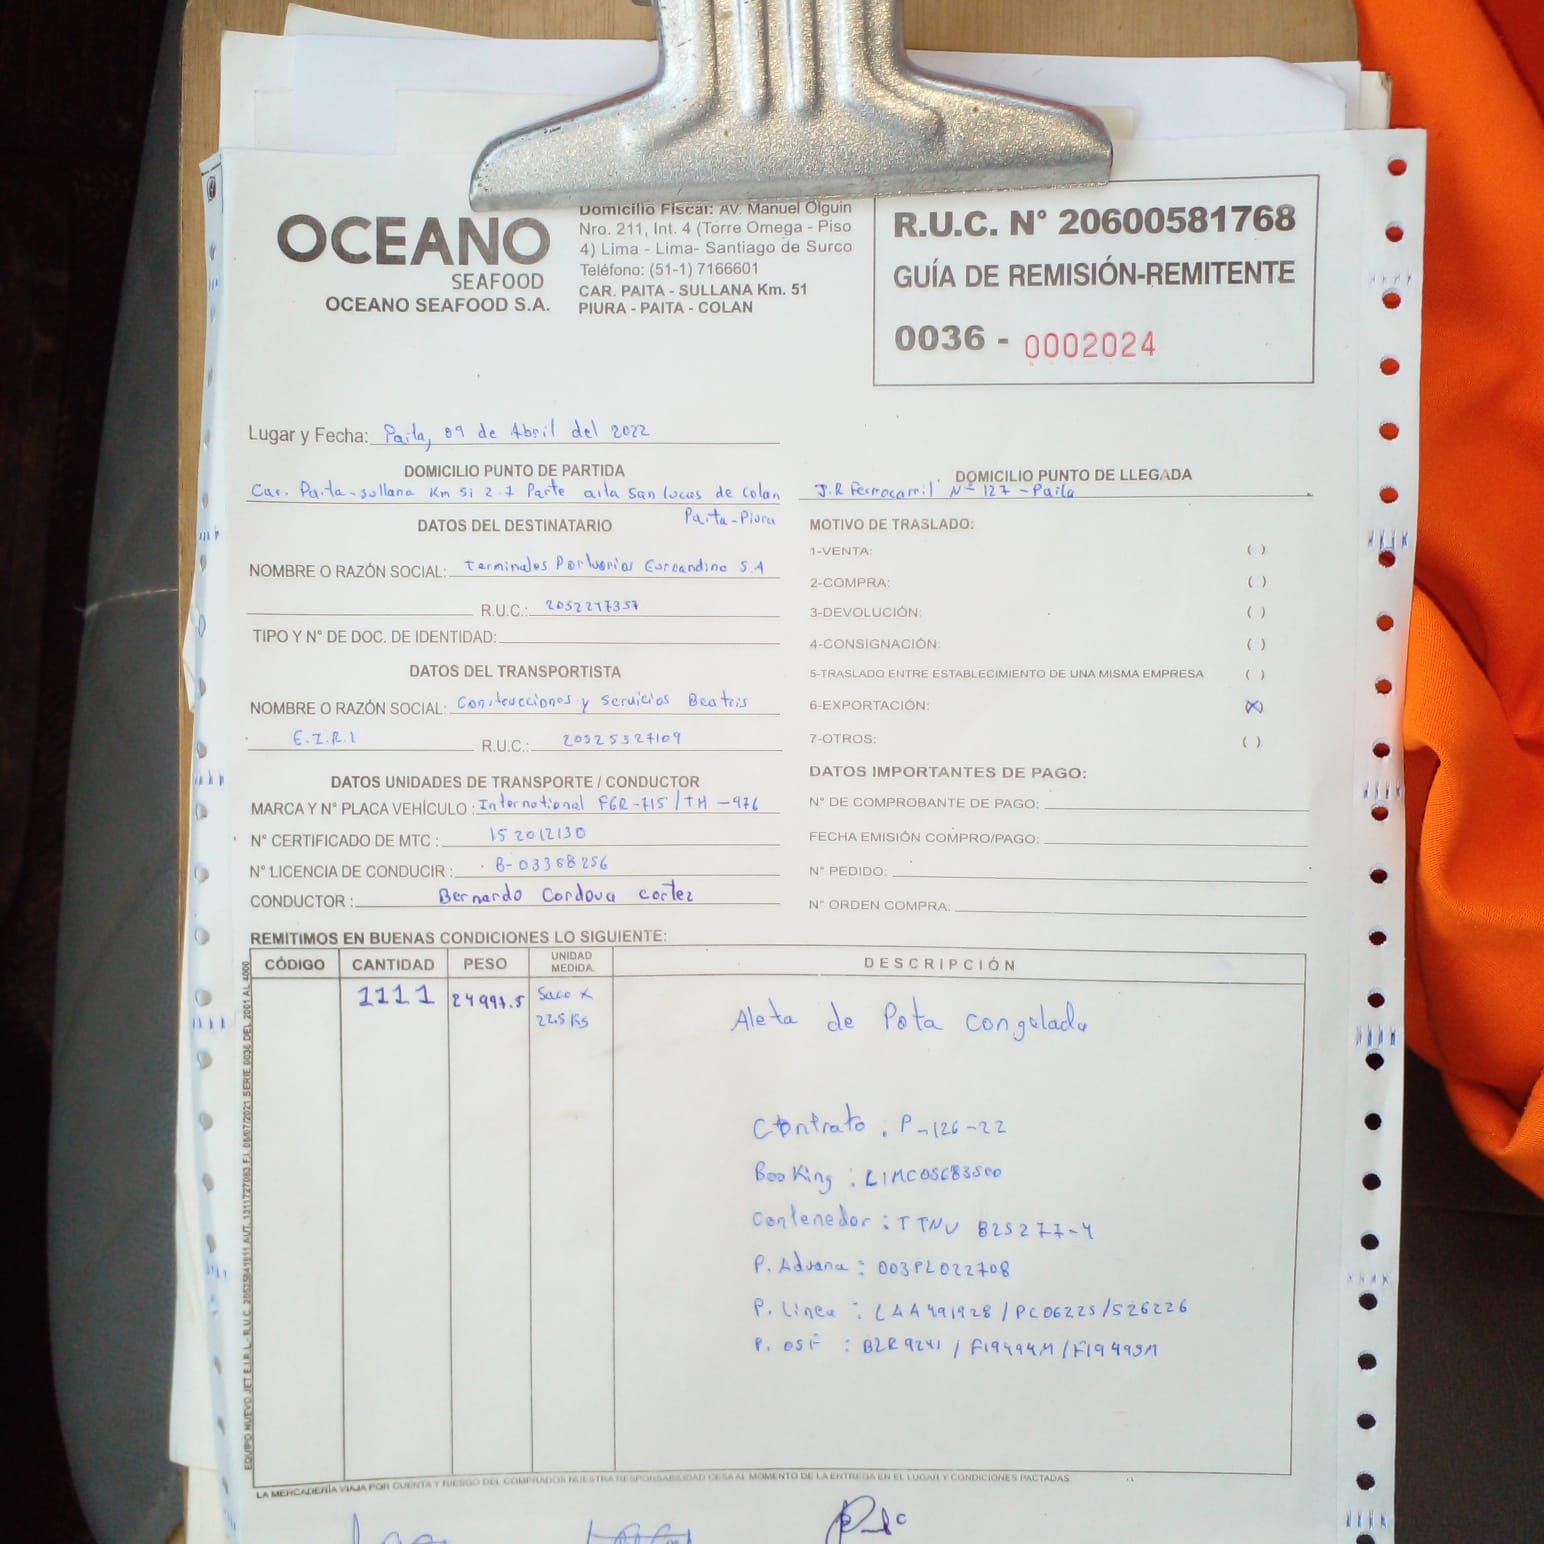 OCEANO
SEAFOOD
OCEANO SEAFOOD S.A.
Domicilio Fiscal: AV. Manuel Olguin
Nro. 211, Int. 4 (Torre Omega - Piso
4) Lima - Lima- Santiago de Surco
Teléfono: (51-1) 7166601
CAR. PAITA - SULLANA Km. 51
PIURA - PAITA - COLAN
R.U.C. N° 20600581768
GUÍA DE REMISIÓN-REMITENTE
0036 - 0002024
Lugar y Fecha: Paita, 09 de Abril del 2022
DOMICILIO PUNTO DE PARTIDA
Car. Paita-sullana Km 51 2.7 Parte alta San Lucas de Colan
Paita-Piura
DOMICILIO PUNTO DE LLEGADA
J.R Ferrocarril N° 127 - Paita
DATOS DEL DESTINATARIO
NOMBRE O RAZÓN SOCIAL: Terminales Portuarios Euroandino S.A
R.U.C.: 2052217357
TIPO Y N° DE DOC. DE IDENTIDAD:
DATOS DEL TRANSPORTISTA
NOMBRE O RAZÓN SOCIAL: Construcciones y Servicios Beatris
E.I.R.L R.U.C.: 20525327109
DATOS UNIDADES DE TRANSPORTE / CONDUCTOR
MARCA Y N° PLACA VEHÍCULO : International FGR-715 / TH -976
N° CERTIFICADO DE MTC : 152012130
N° LICENCIA DE CONDUCIR : B-03388256
CONDUCTOR : Bernardo Cordova cortez
MOTIVO DE TRASLADO:
1-VENTA: ( )
2-COMPRA: ( )
3-DEVOLUCIÓN: ( )
4-CONSIGNACIÓN: ( )
5-TRASLADO ENTRE ESTABLECIMIENTO DE UNA MISMA EMPRESA ( )
6-EXPORTACIÓN: (X)
7-OTROS: ( )
DATOS IMPORTANTES DE PAGO:
N° DE COMPROBANTE DE PAGO:
FECHA EMISIÓN COMPRO/PAGO:
N° PEDIDO:
N° ORDEN COMPRA:
REMITIMOS EN BUENAS CONDICIONES LO SIGUIENTE:
CÓDIGO CANTIDAD PESO UNIDAD MEDIDA. DESCRIPCIÓN
1111 24997.5 Saco x
22.5 Kg
Aleta de Pota congelada
Contrato : P-126-22
Booking : LIMC05683500
Contenedor : TTNU 825277-4
P. Aduana : 003PL022708
P. Linea : LAA491928 / PC06225 / 526226
P. OSF : BZR9241 / F19494M / F19495M
LA MERCADERÍA VIAJA POR CUENTA Y RIESGO DEL COMPRADOS NUESTRA RESPONSABILIDAD CESA AL MOMENTO DE LA ENTREGA EN EL LUGAR Y CONDICIONES PACTADAS